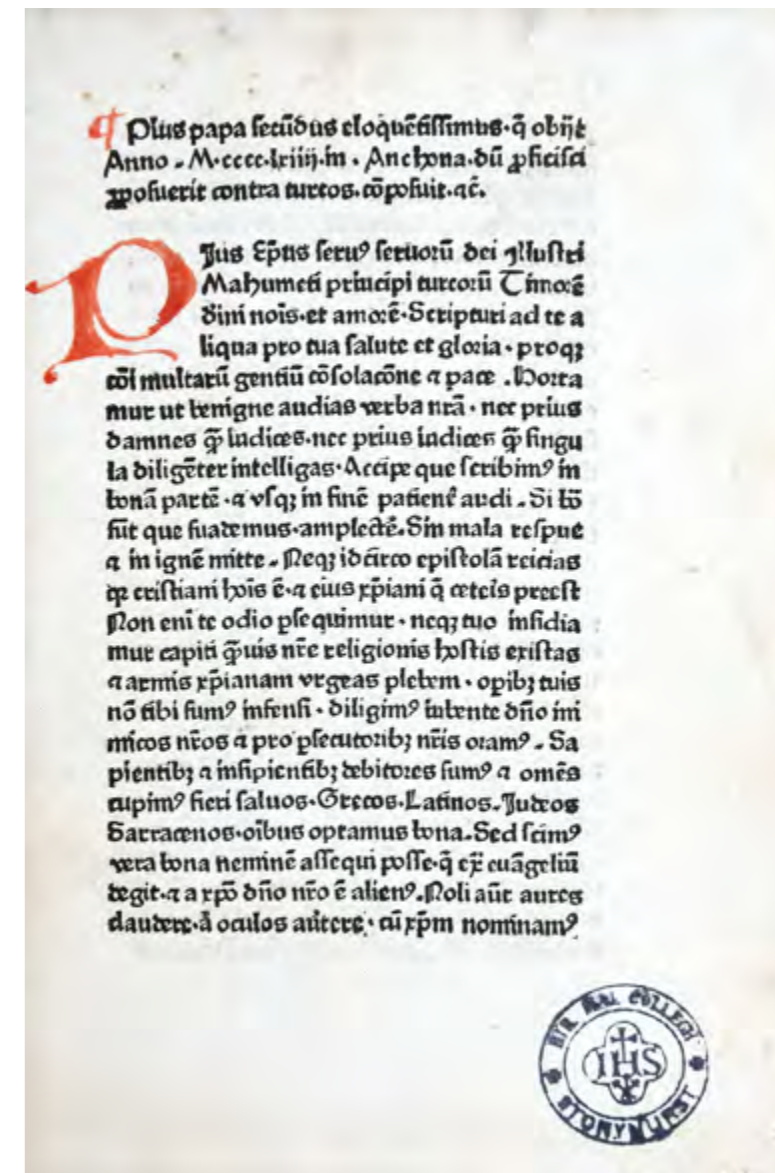 ¶ PIus papa secūdus eloquētissimus·q̄ obijt
Anno · M·cccc·lxiiij·in · Anchona·dū ꝓficisci
ꝓposuerit contra turcos·cōposuit·ac̄.
PIus Ep̄us seruꝰ seruorū dei Illustri
Mahumeti principi turcorū Timorē
diuini nois·et amorē·Scripturi ad te a
liqua pro tua salute et gloria · proqꝫ
cōi multarū gentiū cōsolacōne ⁊ pace · Horta
mur ut benigne audias verba nr̄a · nec prius
damnes q̄ȝ iudices·nec prius iudices q̄ȝ singu
la diligēter intelligas·Accipe que scribimꝰ in
bonā partē ·⁊ vsqꝫ in finē patient̄ audi · Si bō
sūt que suademus·amplectē·Sin mala respue
⁊ in ignē mitte · Neqꝫ idcirco epistolā reicias
qꝛ cristiani hoīs ē·⁊ eius xp̄iani q̄ ceteīs preest
Non enī te odio ꝑsequimur · neqꝫ tuo insidia
mur capiti q̄ȝuis nr̄e religionis hostis existas
⁊ armis xp̄ianam vrgeas plebem · opibꝫ tuis
nō tibi sumꝰ infensi · diligimꝰ iubente dn̄o ini
micos nr̄os ⁊ pro ꝑsecutoribꝫ nr̄is oramꝰ · Sa
pientibꝫ ⁊ insipientibꝫ debitores sumꝰ ⁊ omēs
cupimꝰ fieri saluos·Grecos·Latinos·Iudeos
Sarracenos·oībus optamus bona·Sed scimꝰ
vera bona neminē assequi posse·q̄ ex̄ euāgeliū
degit·⁊ a xp̄o dn̄o nr̄o ē alienꝰ·Noli aūt aures
claudere·ā oculos aūtere · cū xp̄m nominamꝰ
COLLEGII
IHS
STONYHURST